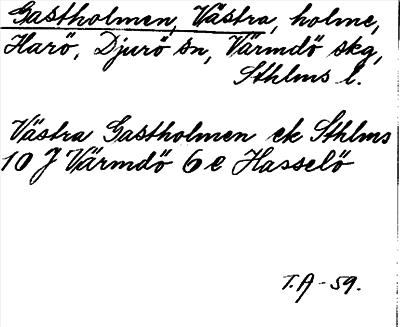 Gastholmen, Västra, holme,
Harö, Djurö sn, Värmdö skg,
Sthlms l.
Västra Gastholmen ek Sthlms
10 J Värmdö 6 e Hasselö
T.A - 59.